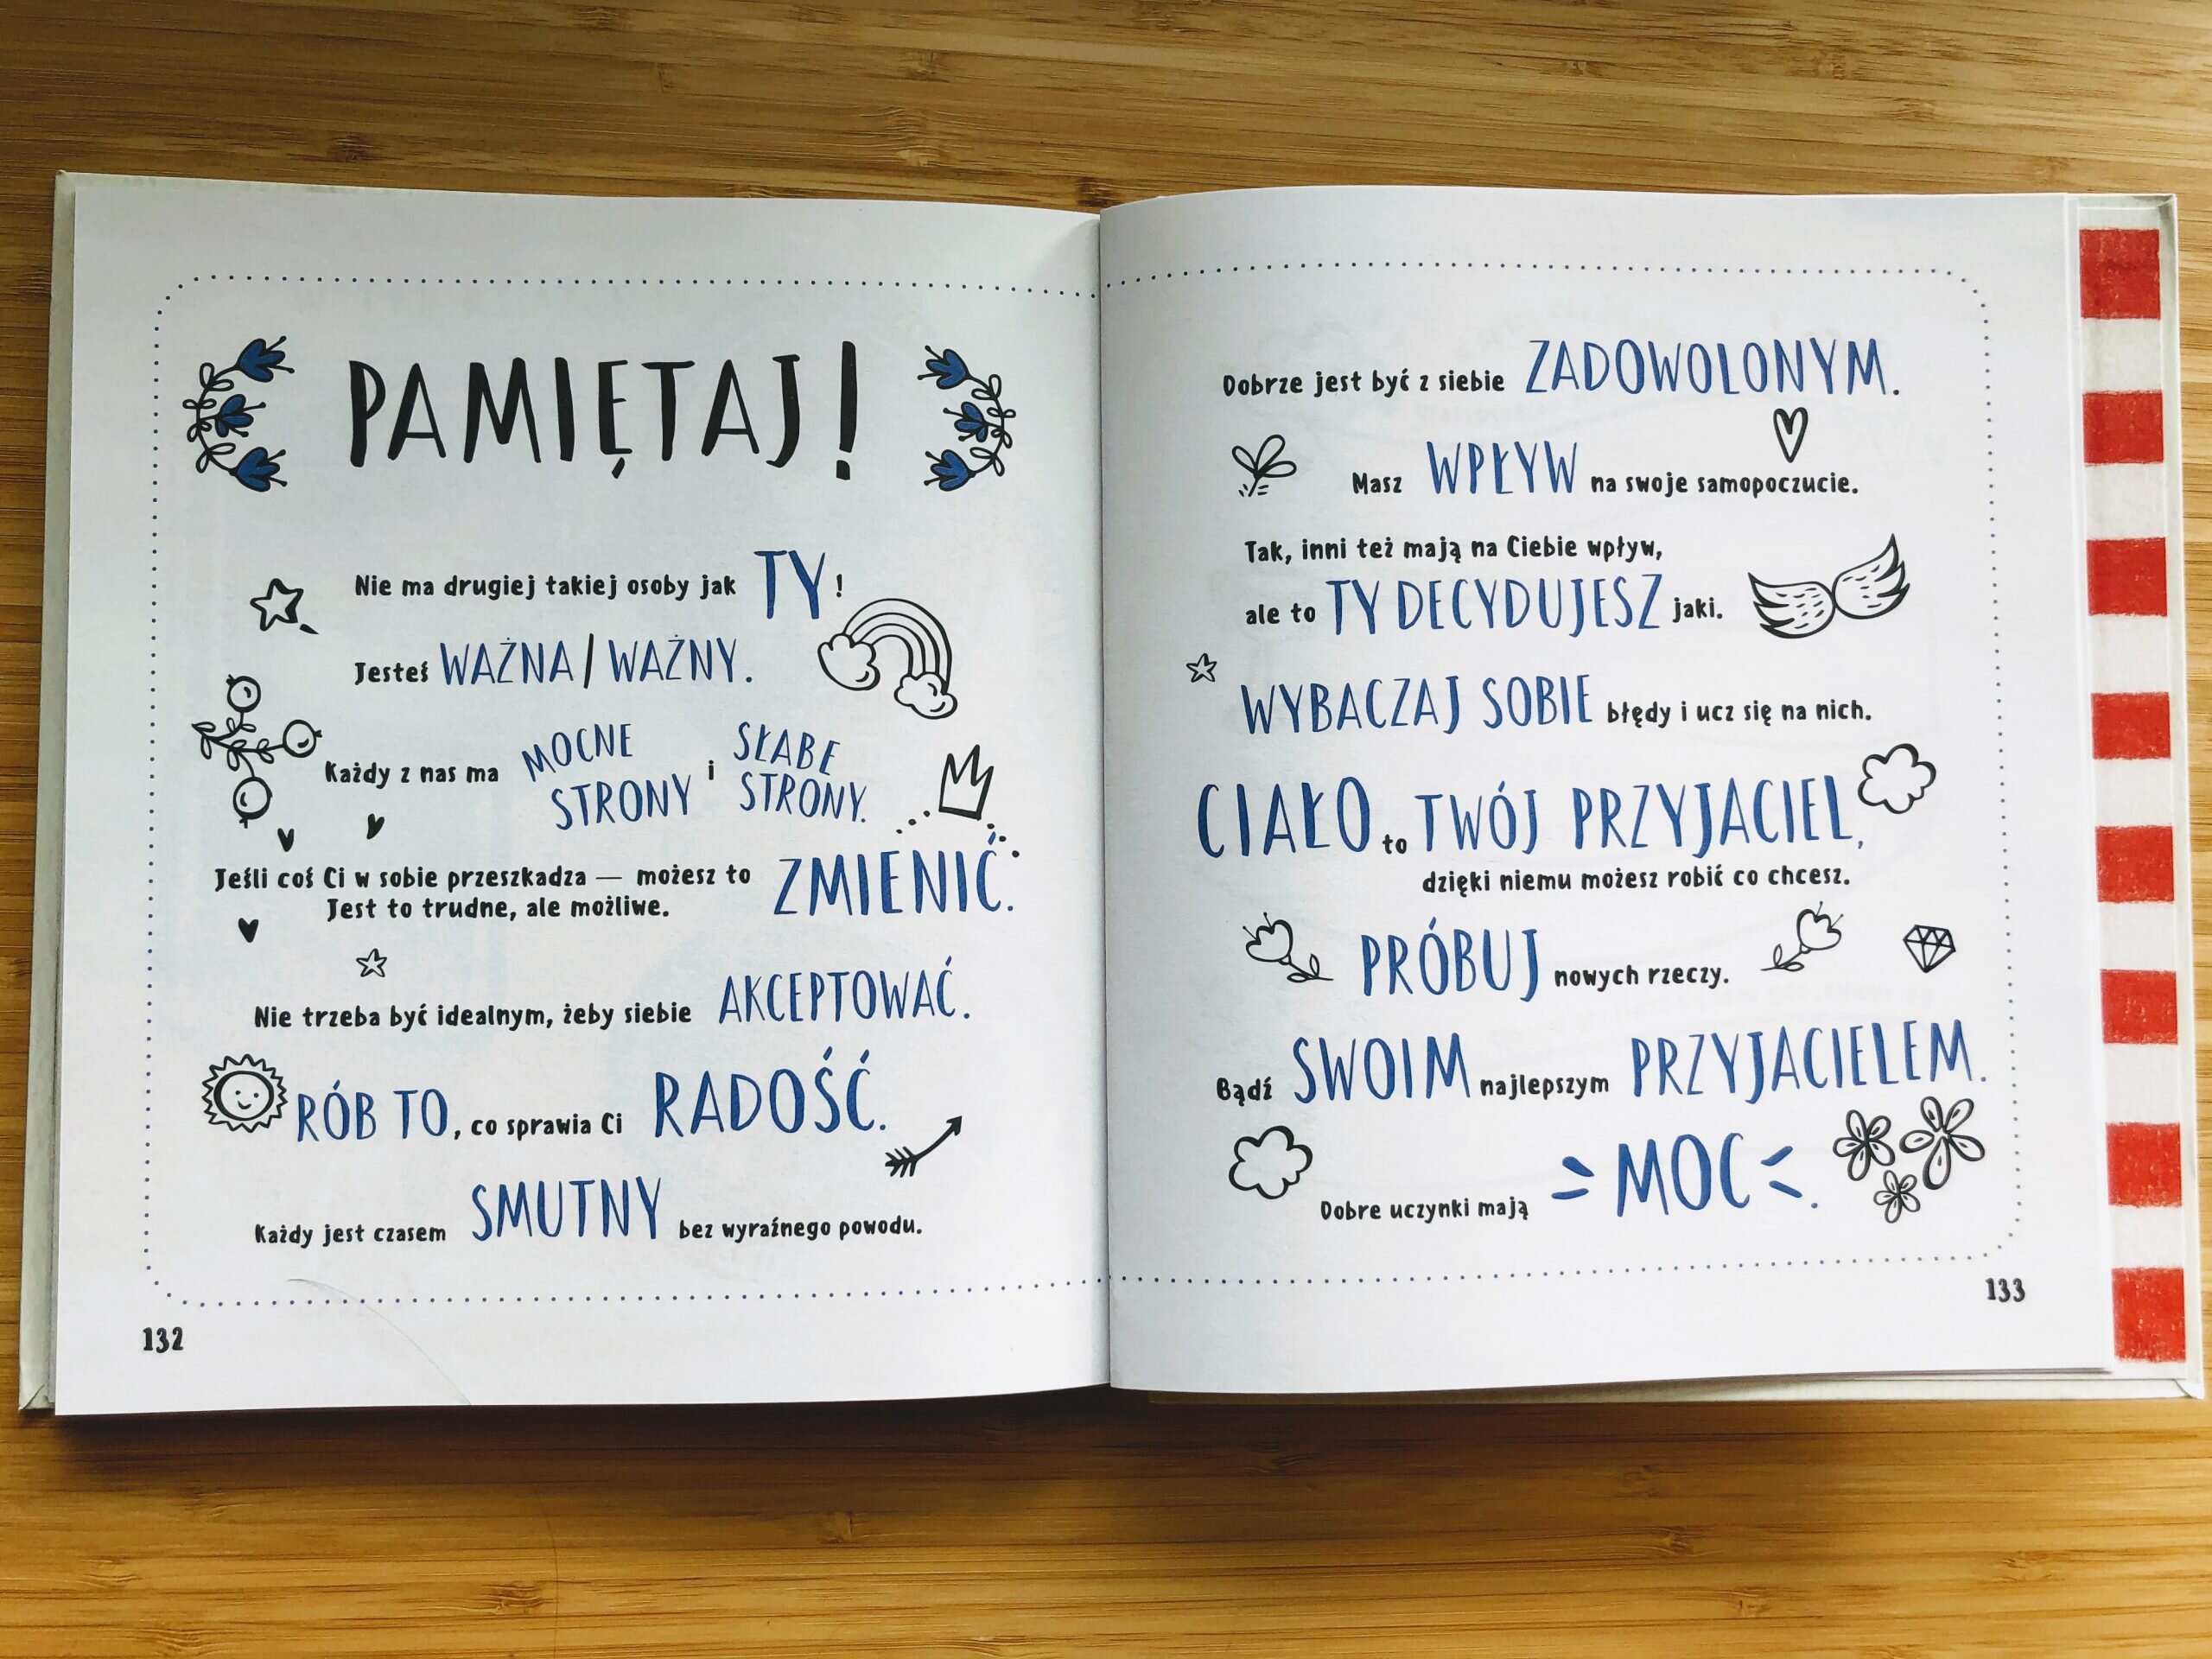 PAMIĘTAJ!
Nie ma drugiej takiej osoby jak TY!
Jesteś WAŻNA/WAŻNY.
Każdy z nas ma MOCNE STRONY i SŁABE STRONY.
Jeśli coś Ci w sobie przeszkadza — możesz to ZMIENIĆ.
Jest to trudne, ale możliwe.
Nie trzeba być idealnym, żeby siebie AKCEPTOWAĆ.
RÓB TO, co sprawia Ci RADOŚĆ.
Każdy jest czasem SMUTNY bez wyraźnego powodu.
132
Dobrze jest być z siebie ZADOWOLONYM.
Masz WPŁYW na swoje samopoczucie.
Tak, inni też mają na Ciebie wpływ,
ale to TY DECYDUJESZ jaki.
WYBACZAJ SOBIE błędy i ucz się na nich.
CIAŁO to TWÓJ PRZYJACIEL,
dzięki niemu możesz robić co chcesz.
PRÓBUJ nowych rzeczy.
Bądź SWOIM najlepszym PRZYJACIELEM.
Dobre uczynki mają MOC.
133